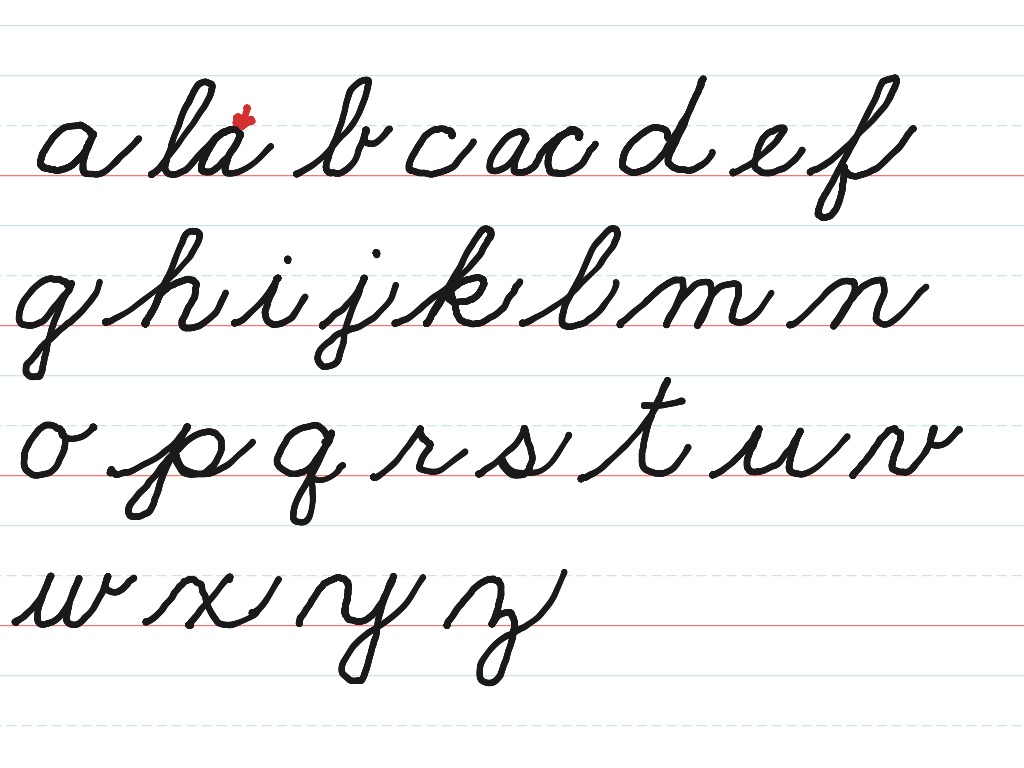 a la b c ac d e f
g h i j k l m n
o p q r s t u v
w x y z